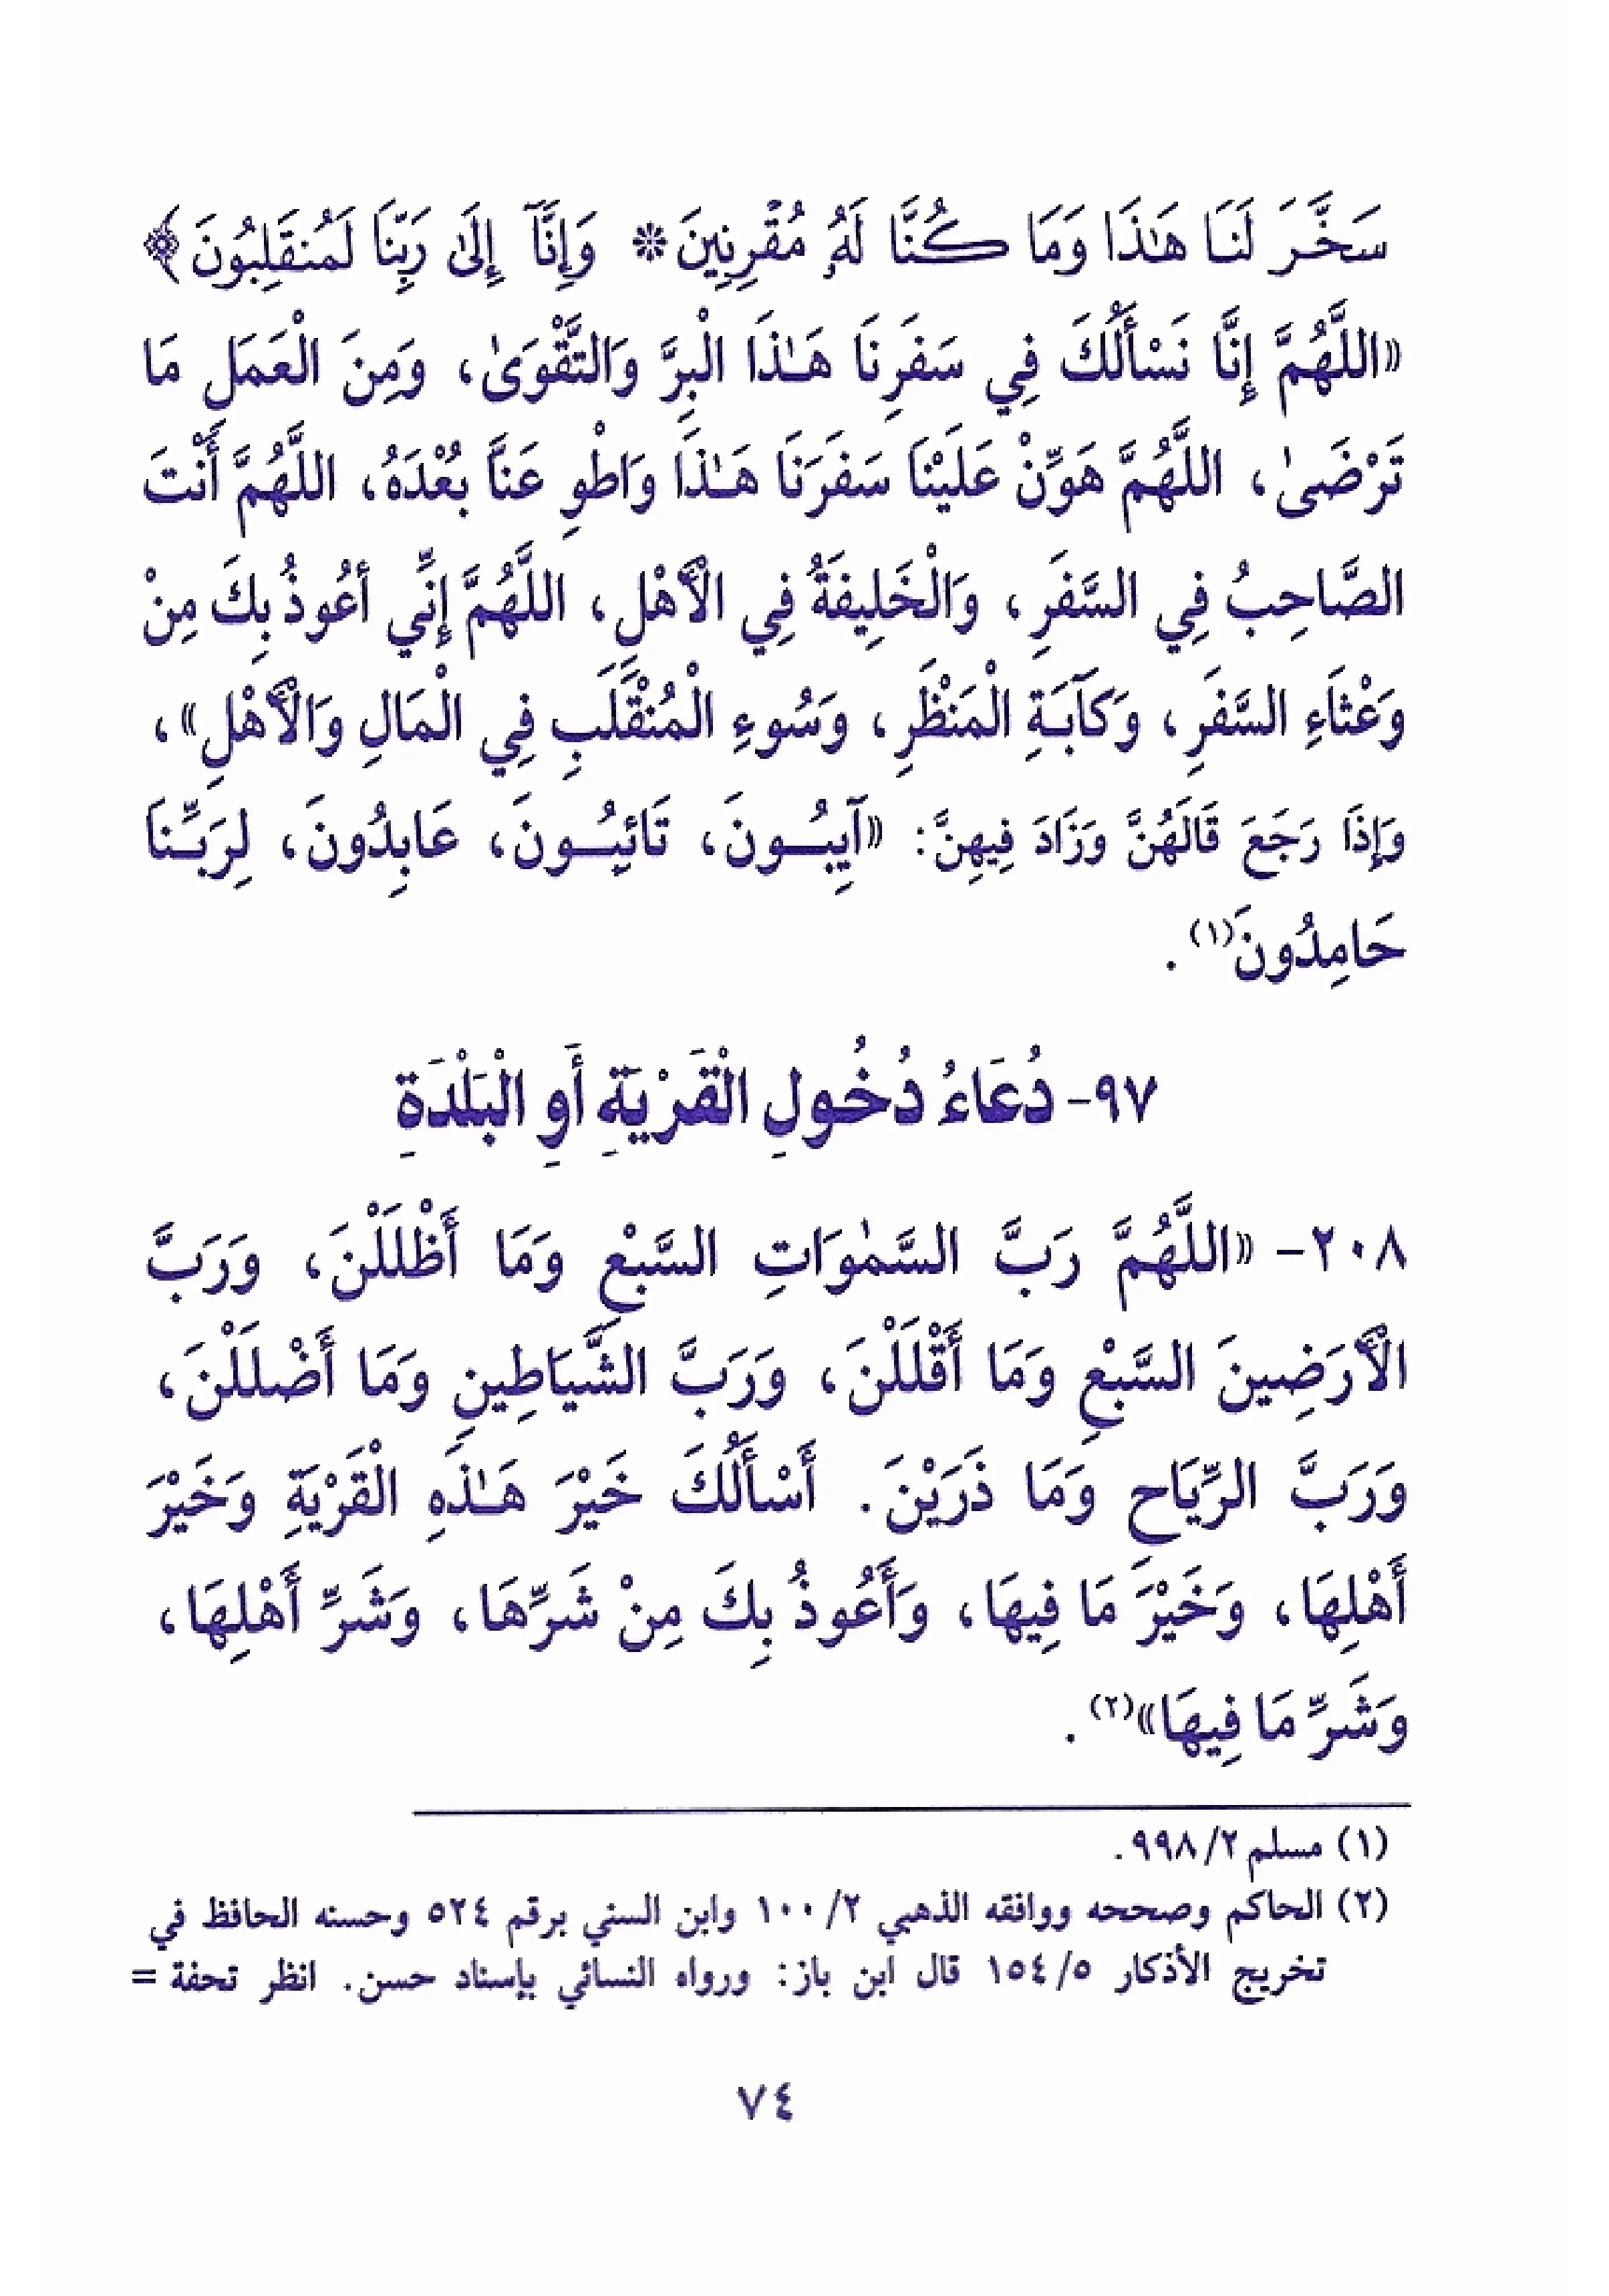 سَخَّرَ لَنَا هَٰذَا وَمَا كُنَّا لَهُۥ مُقْرِنِينَ * وَإِنَّآ إِلَىٰ رَبِّنَا لَمُنقَلِبُونَ ﴾
«اللَّهُمَّ إِنَّا نَسْأَلُكَ فِي سَفَرِنَا هَـٰذَا الْبِرَّ وَالتَّقْوَىٰ، وَمِنَ الْعَمَلِ مَا
تَرْضَىٰ، اللَّهُمَّ هَوِّنْ عَلَيْنَا سَفَرَنَا هَـٰذَا وَاطْوِ عَنَّا بُعْدَهُ، اللَّهُمَّ أَنْتَ
الصَّاحِبُ فِي السَّفَرِ، وَالْخَلِيفَةُ فِي الْأَهْلِ، اللَّهُمَّ إِنِّي أَعُوذُ بِكَ مِنْ
وَعْثَاءِ السَّفَرِ، وَكَآبَـةِ الْمَنْظَرِ، وَسُوءِ الْمُنْقَلَبِ فِي الْمَالِ وَالْأَهْلِ»،
وَإِذَا رَجَعَ قَالَهُنَّ وَزَادَ فِيهِنَّ: «آيِبُـونَ، تَائِبُـونَ، عَابِدُونَ، لِرَبِّـنَا
حَامِدُونَ(١).
٩٧- دُعَاءُ دُخُولِ الْقَرْيَةِ أَوِ الْبَلْدَةِ
٢٠٨- «اللَّهُمَّ رَبَّ السَّمٰوَاتِ السَّبْعِ وَمَا أَظْلَلْنَ، وَرَبَّ
الْأَرَضِينَ السَّبْعِ وَمَا أَقْلَلْنَ، وَرَبَّ الشَّيَاطِينِ وَمَا أَضْلَلْنَ،
وَرَبَّ الرِّيَاحِ وَمَا ذَرَيْنَ. أَسْأَلُكَ خَيْرَ هَـٰذِهِ الْقَرْيَةِ وَخَيْرَ
أَهْلِهَا، وَخَيْرَ مَا فِيهَا، وَأَعُوذُ بِكَ مِنْ شَرِّهَا، وَشَرِّ أَهْلِهَا،
وَشَرِّ مَا فِيهَا»(٢).
(١) مسلم ٢/ ٩٩٨.
(٢) الحاكم وصححه ووافقه الذهبي ٢/ ١٠٠ وابن السني برقم ٥٢٤ وحسنه الحافظ في
تخريج الأذكار ٥/ ١٥٤ قال ابن باز: ورواه النسائي بإسناد حسن. انظر تحفة =
٧٤